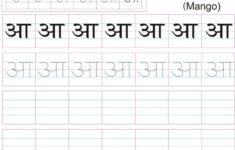 आ
(Mango)
आ आ आ आ आ आ आ
आ आ आ आ आ आ आ